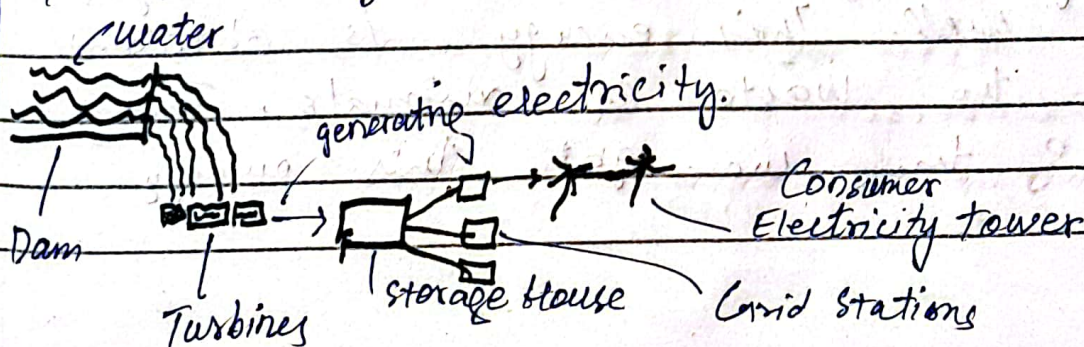 water
generating electricity.
Consumer
Electricity tower
Dam
storage House
Grid stations
Turbines